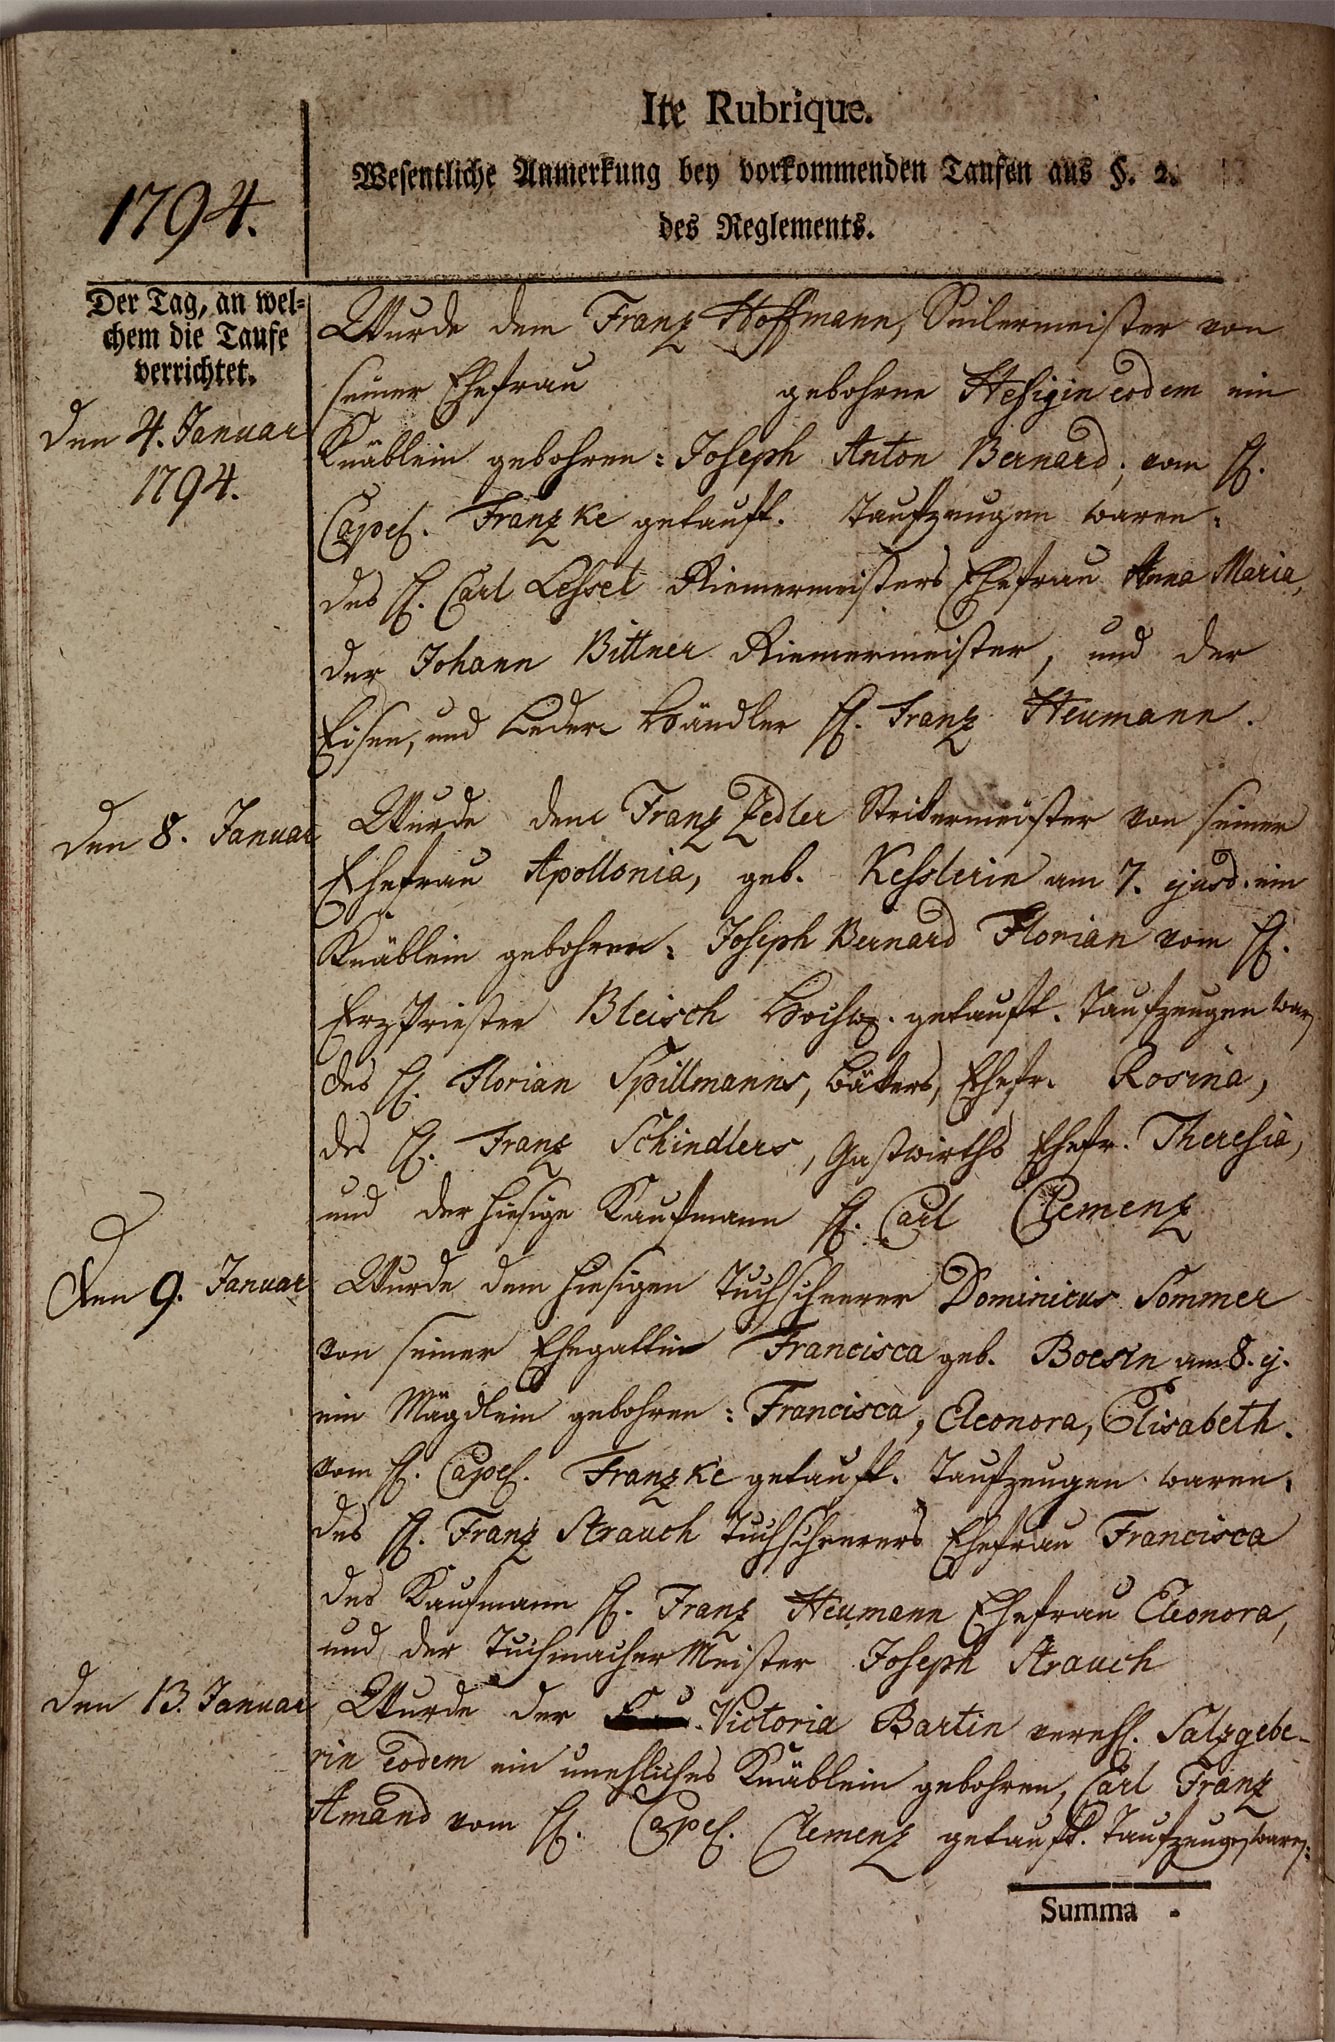 Ite Rubrique.
Wesentliche Anmerkung bey vorkommenden Taufen aus §. 2.
des Reglements.
1794.
Der Tag, an wel-
chem die Taufe
verrichtet.
den 4. Januar
1794.
Wurde dem Franz Hoffmann, Seilermeister von
seiner Ehefrau gebohrne Heßigin eodem ein
Knäblein gebohren: Joseph Anton Bernard, vom H.
Capel. Franzke getauft. Taufzeugen waren:
des H. Carl Leßel Riemermeisters Ehefrau Anna Maria,
der Johann Bittner Riemermeister, und der
Eisen, und Leder Händler H. Franz Heumann.
den 8. Januar
Wurde dem Franz Zedler Strikermeister von seiner
Ehefrau Apollonia, geb. Keßlerin am 7. ejusd. ein
Knäblein gebohren: Joseph Bernard Florian vom H.
Erzpriester Bleisch Hochw. getauft. Taufzeugen war
des H. Florian Spillmanns, Bäkers, Ehefr. Rosina,
des H. Franz Schindlers, Gastwirths Ehefr. Theresia,
und der hiesige Kaufmann H. Carl Clemenz
den 9. Januar
Wurde dem hiesigen Tuchscheerer Dominicus Sommer
von seiner Ehegattin Francisca geb. Boesin am 8. ej.
ein Mägdlein gebohren: Francisca, Eleonora, Elisabeth.
vom H. Capel. Franzke getauft. Taufzeugen waren:
des H. Franz Strauch Tuchscheerers Ehefrau Francisca
des Kaufmann H. Franz Heumann Ehefrau Eleonora,
und der Tuchmacher Meister Joseph Strauch
den 13. Januar
Wurde der Victoria Bartin verehl. Salzgebe-
rin eodem ein unehliches Knäblein gebohren, Carl Franz
Amand vom H. Capel. Clemenz getauft. Taufzeugen waren:
Summa -